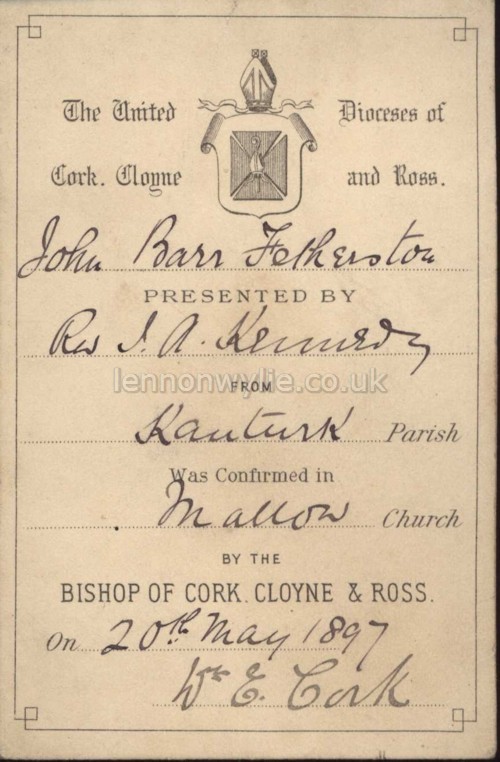 The United Dioceses of
Cork. Cloyne and Ross.
John Barr Fetherston
PRESENTED BY
Rev J. A. Kennedy
lennonwylie.co.uk
FROM
Kanturk Parish
Was Confirmed in
Mallow Church
BY THE
BISHOP OF CORK. CLOYNE & ROSS.
On 20th May 1897
Wm E. Cork